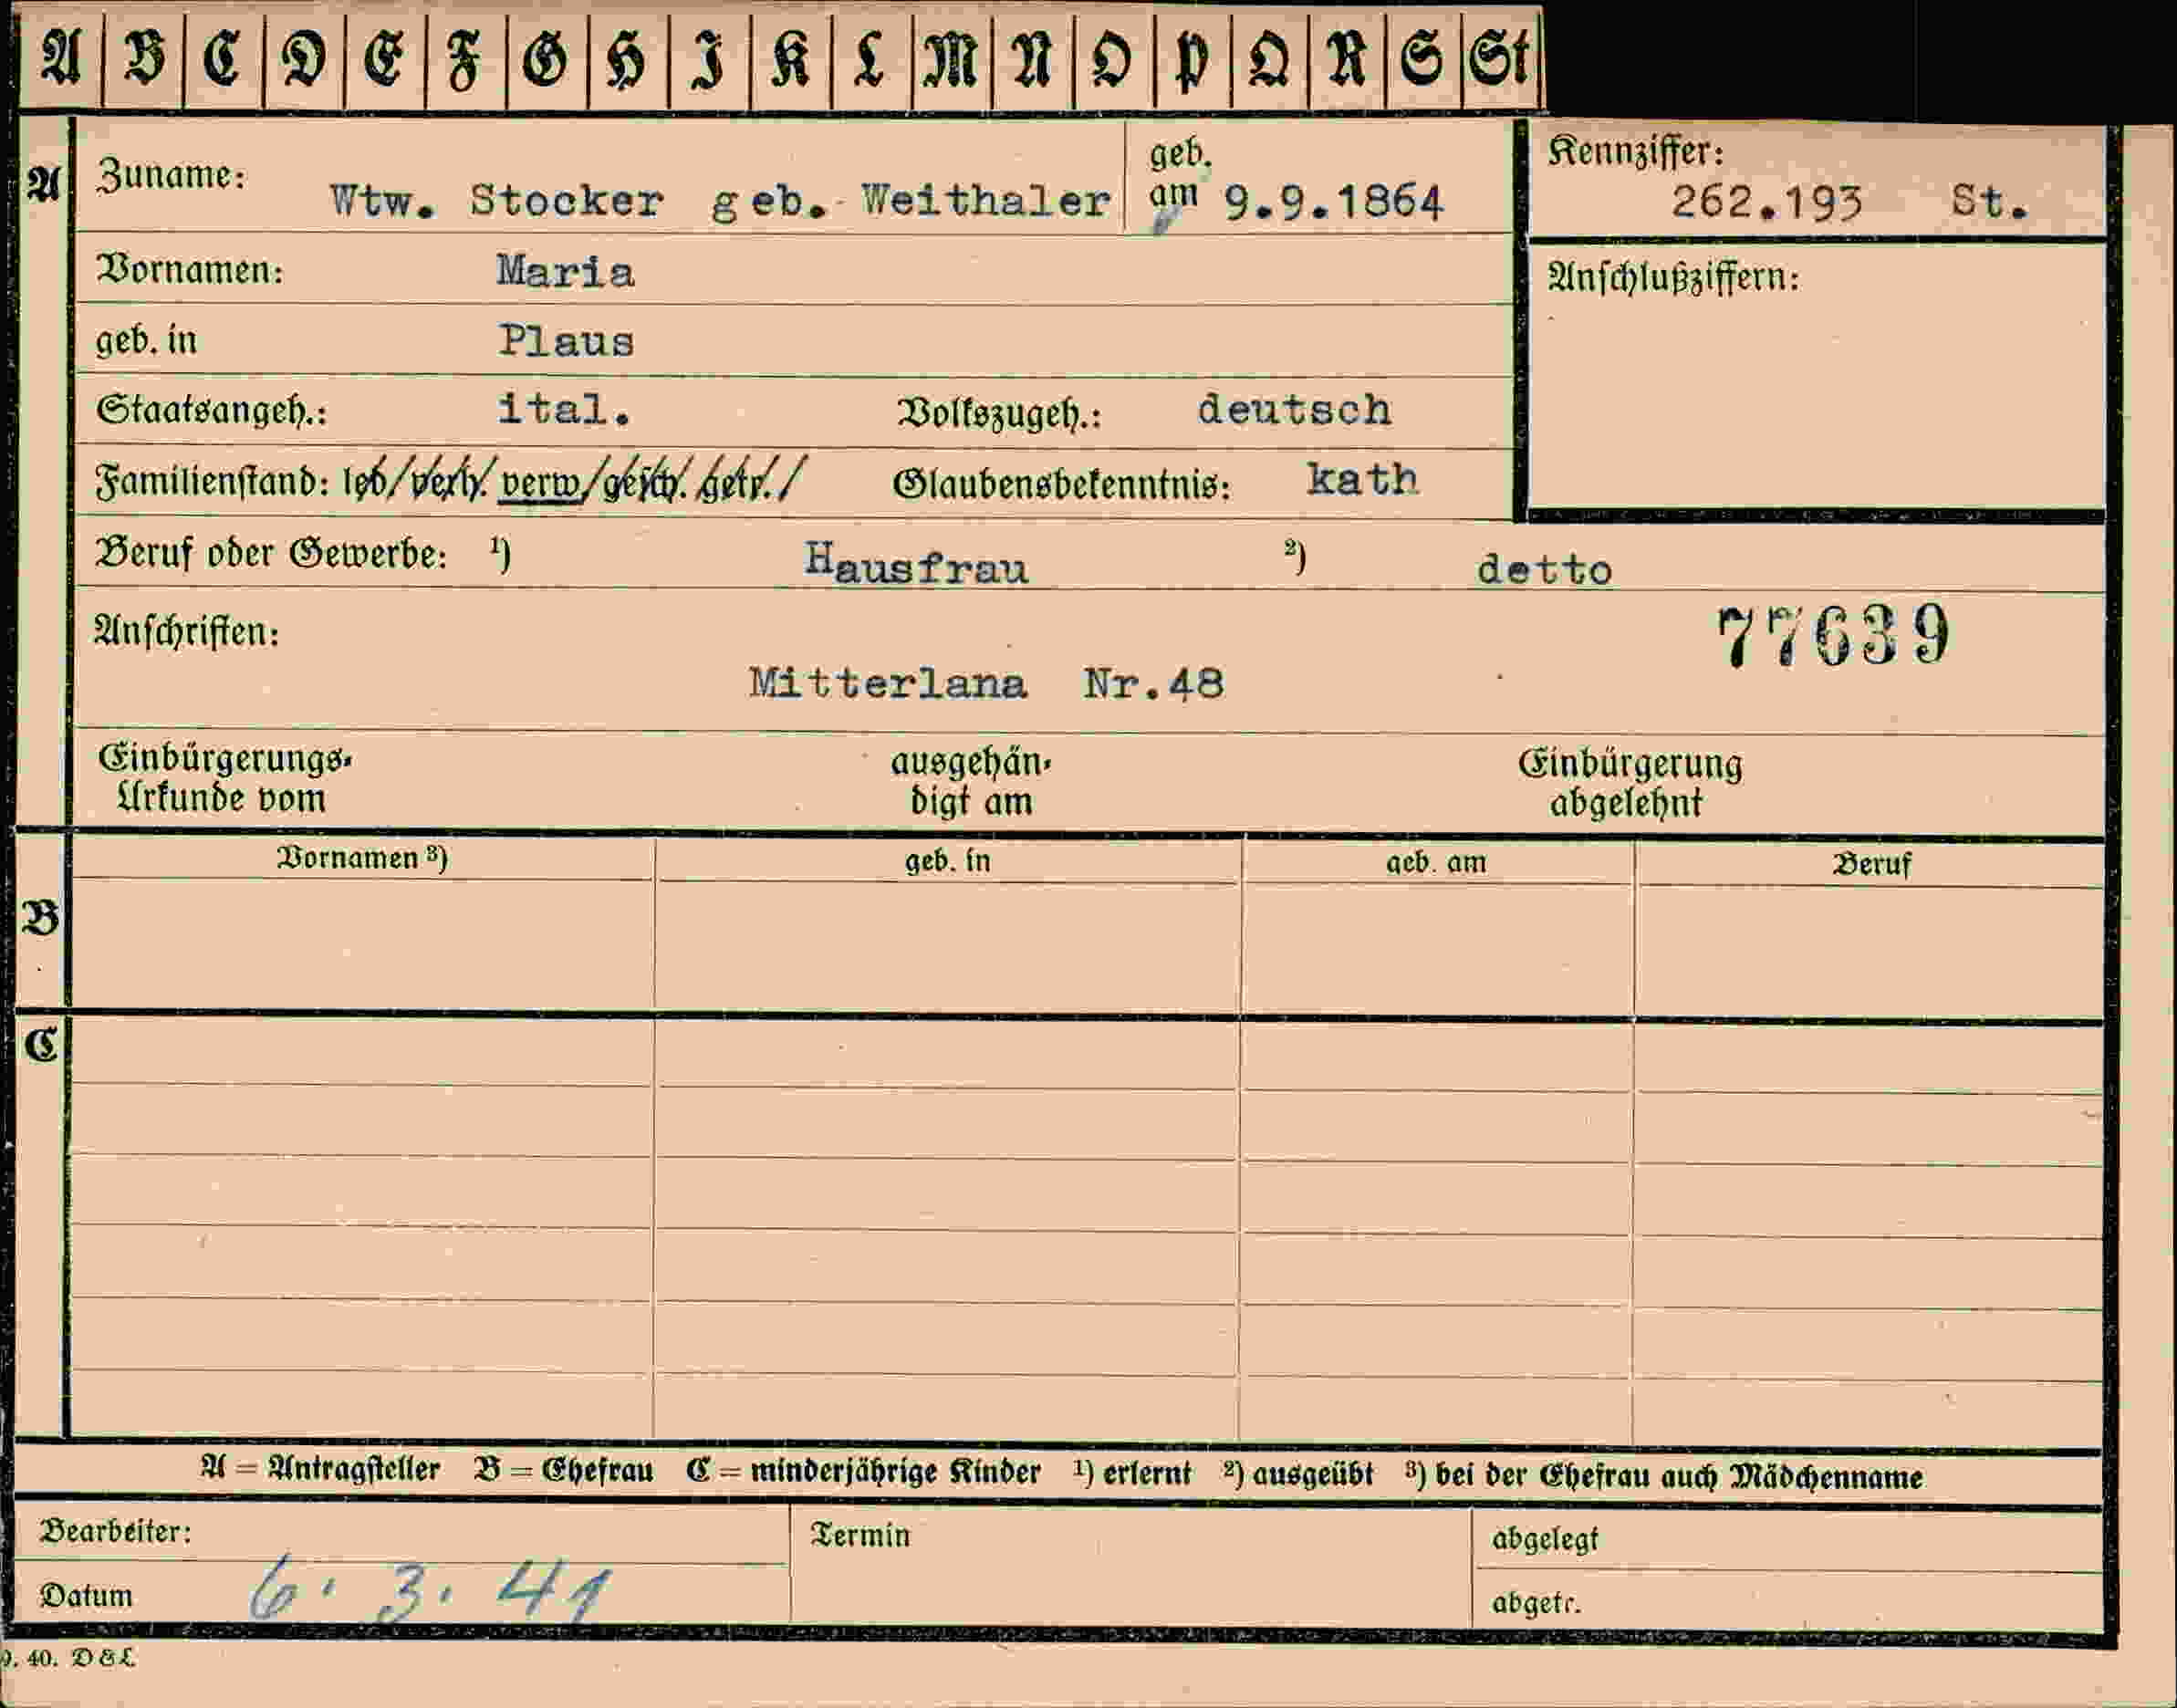 A B C D E F G H I K L M N O P Q R S St
A Zuname: Wtw. Stocker geb. Weithaler geb. am 9.9.1864
Kennziffer: 262.193 St.
Vornamen: Maria
Anschlußziffern:
geb. in Plaus
Staatsangeh.: ital. Volkszugeh.: deutsch
Familienstand: led/verh. verw/gesch. getr./ Glaubensbekenntnis: kath
Beruf oder Gewerbe: 1) Hausfrau 2) detto
Anschriften: 77639
Mitterlana Nr.48
Einbürgerungs- ausgehän- Einbürgerung
Urkunde vom digt am abgelehnt
Vornamen 3) geb. in geb. am Beruf
B
C
A = Antragsteller B = Ehefrau C = minderjährige Kinder 1) erlernt 2) ausgeübt 3) bei der Ehefrau auch Mädchenname
Bearbeiter: Termin abgelegt
Datum 6. 3. 41 abgetr.
9. 40. D & L